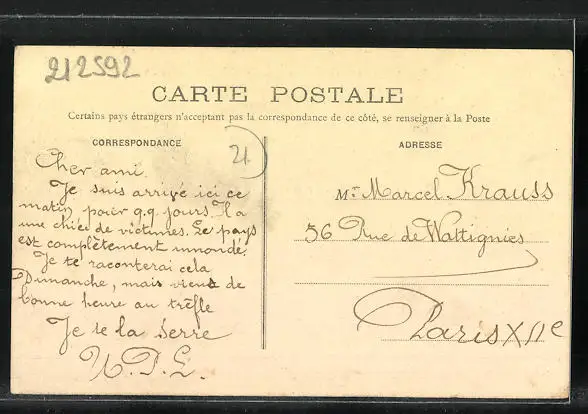 212592
CARTE POSTALE
Certains pays étrangers n'acceptant pas la correspondance de ce côté, se renseigner à la Poste
CORRESPONDANCE
21
Cher ami
Je suis arrivé ici ce
matin, pour q.q. jours. Il a
une chiée de victimes. Le pays
est complètement innondé.
Je te raconterai cela
Dimanche, mais viens de
bonne heure au trèfle
Je te la serre
ADRESSE
Mr Marcel Krauss
56 Rue de Wattignies
Paris XIIe